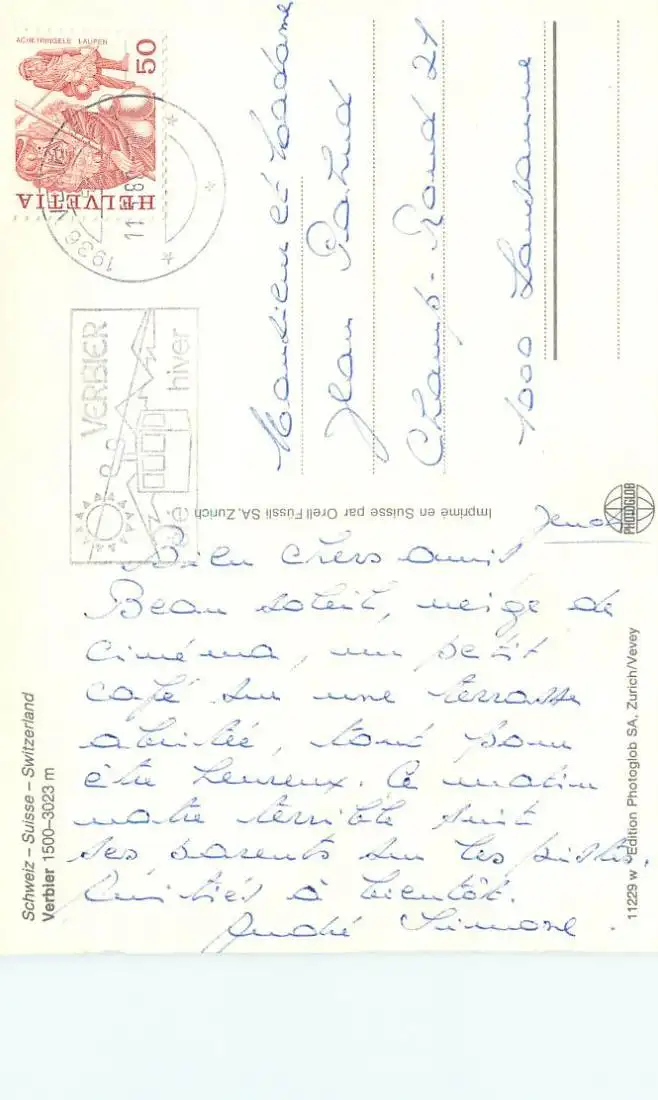 ACHETRINGELE LAUPEN
50
HELVETIA
1936
11
VERBIER
été
hiver
Monsieur et Madame
Jean
Champ-Rond 21
1000 Lausanne
Imprimé en Suisse par Orell Füssli SA, Zurich
PHOTOGLOB
Jeudi
Bien chers amis
Beau soleil, neige de
cinéma, un petit
café sur une terrasse
abritée, tout pour
être heureux. Ce matin
notre terrible suit
ses parents sur les pistes.
Amitiés à bientôt.
André Simone
Schweiz – Suisse – Switzerland
Verbier 1500–3023 m
11229 w Edition Photoglob SA, Zurich/Vevey